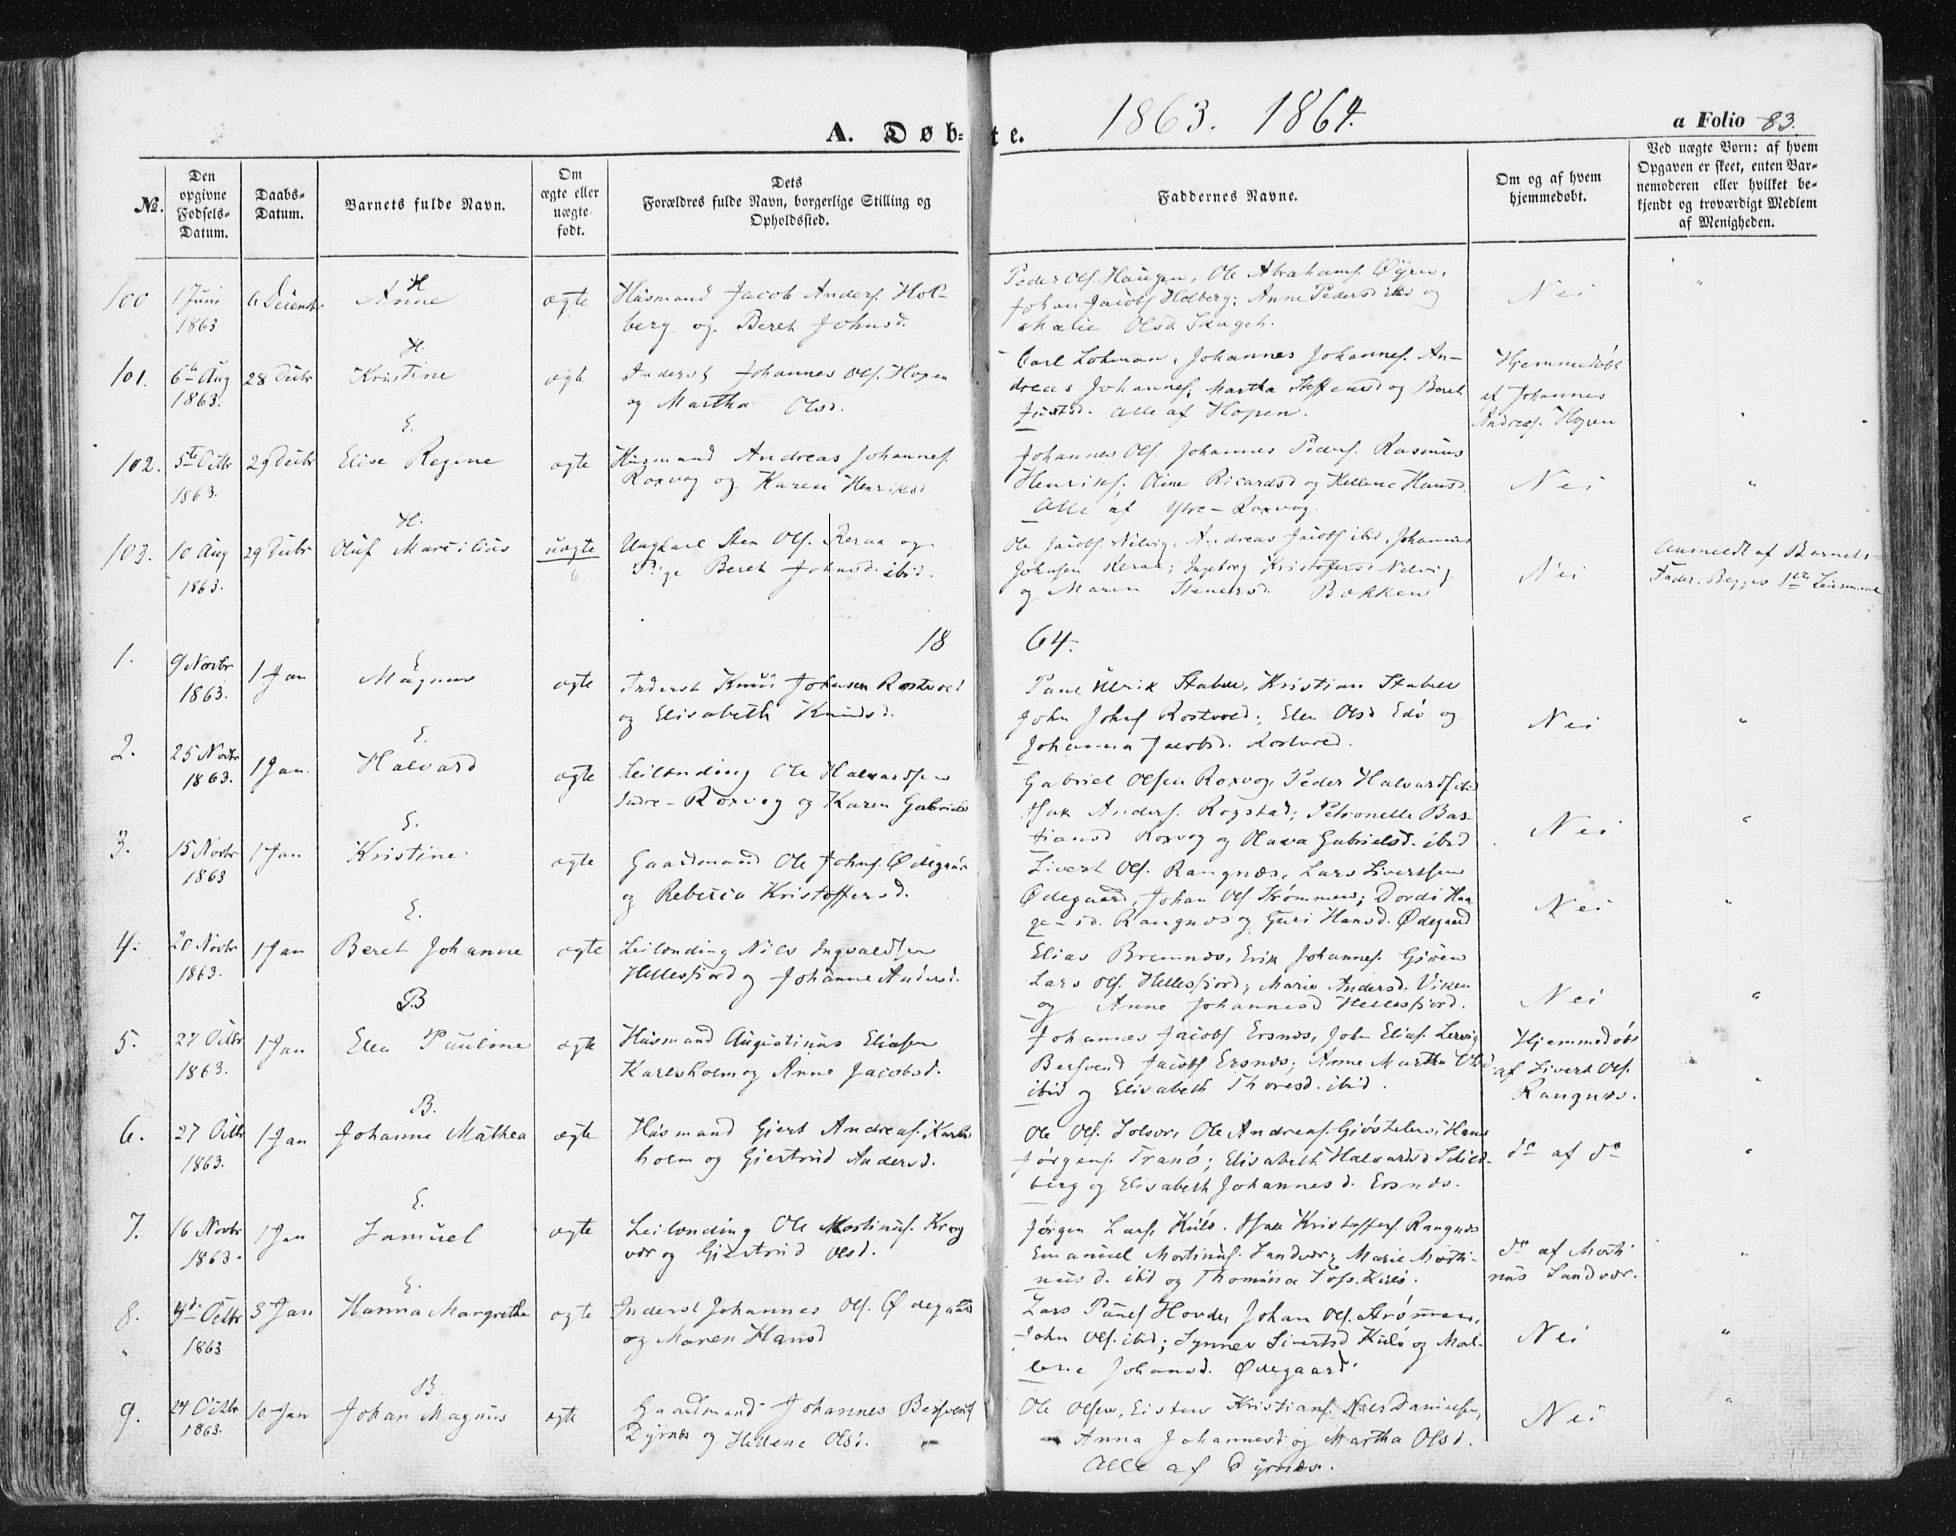 1863. 1864.
A. Døbte.
a Folio 83.
No.
Den opgivne Fødsels-Datum.
Daabs-Datum.
Barnets fulde Navn.
Om ægte eller uægte født.
Dets Forældres fulde Navn, borgerlige Stilling og Opholdssted.
Faddernes Navne.
Om og af hvem hjemmedøbt.
Ved uægte Børn: af hvem Opgaven er skeet, enten Barnemoderen eller hvilket bekjendt og troværdigt Medlem af Menigheden.
100 1 Juni 1863 6 Decembr H Anne ægte
Husmand Jacob Anders. Holberg og Beret Johnsd.
Peder Ols. Haugen, Ole Abrahams. Øyen,
Johan Jacobs. Holberg; Anne Pedersd ibid og
Marie Olsd
Nei "
101. 6te Aug 1863. 28 Decbr H. Kristine ægte
Inderst Johannes Ols. Hopen
og Martha Olsd.
Carl Lohman, Johannes Johannes. Andreas Johannes; Martha Steffensd og Beret
Alle af Hopen.
Hjemmedøbt af Johannes Andreas. Hopen "
102. 5te Octbr 1863. 29 Decbr E. Elise Regine ægte
Husmand Andreas Johannes.
Roxvog og Karen Henriksd
Johannes Ols. Johannes Peders. Rasmus
Henriks; Oline Ricardsd og Hellene Hansd.
Alle af Ytre-Roxvog.
Nei "
103. 10 Aug 1863. 29 Decbr H. Oluf Marcilius uægte 6
Ungkarl Sten Ols. Keraa og
Pige Beret Johnsd. ibid.
Ole Jacobs. Nelvig, Andreas Jacobs ibid, Johannes
Johnsen Keraa; Ingeborg Kristoffersd Nelvig
og Maren Stenersd. Bakken
Nei
Anmeldt af Barnets Fader. Begges 1ste Leiermaal
1864.
1. 9 Novbr 1863. 1 Jan E. Magnus ægte
Inderst Knud Johnsen Rostvold
og Elisabeth Knudsd.
Paul Ulrik Stabel, Kristian Stabell
John Johns Rostvold; Elen Olsd Edø og
Johanna Jacobsd. Rostvold.
Nei "
2. 25 Novbr 1863. 1 Jan. E. Halvard ægte
Leilænding Ole Halvardsen
Indre-Roxvog og Karen Gabrielsd
Gabriel Olsen Roxvog, Peder Halvards ibid
Isak Anders. Rogstad; Petronelle Bastiansd Roxvog og Olava Gabrielsd. ibid
Nei "
3. 15 Novbr 1863 1 Jan E. Kristine ægte
Gaardmand Ole Johns. Ødegaard
og Rebecca Kristoffersd.
Sivert Ols. Rangnæs, Lars Sivertsen
Ødegaard, Johan Ols. Strømmen; Dordi Haagensd. Rangnæs og Guri Hansd. Ødegaard
Nei "
4. 20 Novbr 1863. 1 Jan E. Beret Johanne ægte
Leilænding Nils Ingvaldsen
Hellesfjord og Johanne Andersd.
Elias Bremnæs, Erik Johannes. Gjøen
Lars Ols. Hellesfjord; Marie Andersd. Viken
og Anne Johannesd Hellesfjord.
Nei "
5. 27 Octbr 1863. 1 Jan B Elen Pauline ægte
Husmand Augustinus Eliasen
Karlsholm og Anne Jacobsd.
Johannes Jacobs Ersnæs, John Elias. Lervig
Bersvend Jacobs Ersnæs; Anne Martha Olsd
ibid og Elisabeth Thoresd. ibid.
Hjemmedøbt af Sivert Ols. Rangnæs. "
6. 27 Octbr 1863. 1 Jan B. Johanne Mathea ægte
Husmand Gjert Andreas. Karlsholm og Gjertrud Andersd.
Ole Ols. Solvor, Ole Andreas. Gjøstelen, Hans
Jørgens. Tranø; Elisabeth Halvardsd Schildberg og Elisabeth Johannesd. Ersnæs.
do af do "
7. 16 Novbr 1863. 1 Jan E. Samuel ægte
Leilænding Ole Mortinus. Krogvær og Gjertrud Olsd.
Jørgen Lars. Kulø. Isak Kristoffers. Rangnæs
Emanuel Mortinus. Sandvær; Marie Mortinusd. ibid og Thomina Tøss. Kulø.
do af Mortinus Sandvær. "
8. 4de Octbr 1863 3 Jan E. Hanna Margrethe ægte
Inderst Johannes Ols. Ødegaard
og Maren Hansd
Lars Pauls Hovde, Johan Ols. Strømmen,
John Ols. ibid; Synnev Sivertsd Kulø og Mallene Johansd. Ødegaard.
Nei "
9. 24 Octbr 1863. 10 Jan B. Johan Magnus ægte
Gaardmand Johannes Bersvends
Dyrnæs og Hellene Olsd.
Ole Olsen, Eisten Kristians. Nils Danielsen,
Anna Johannesd og Martha Olsd.
Alle af Dyrnæs.
Nei "